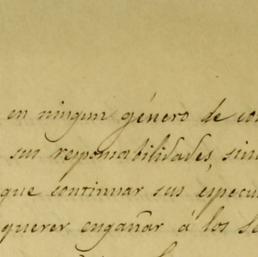 en ningun género de co
sus responsabilidades, sin
que continuar sus especu
querer engañar á los se